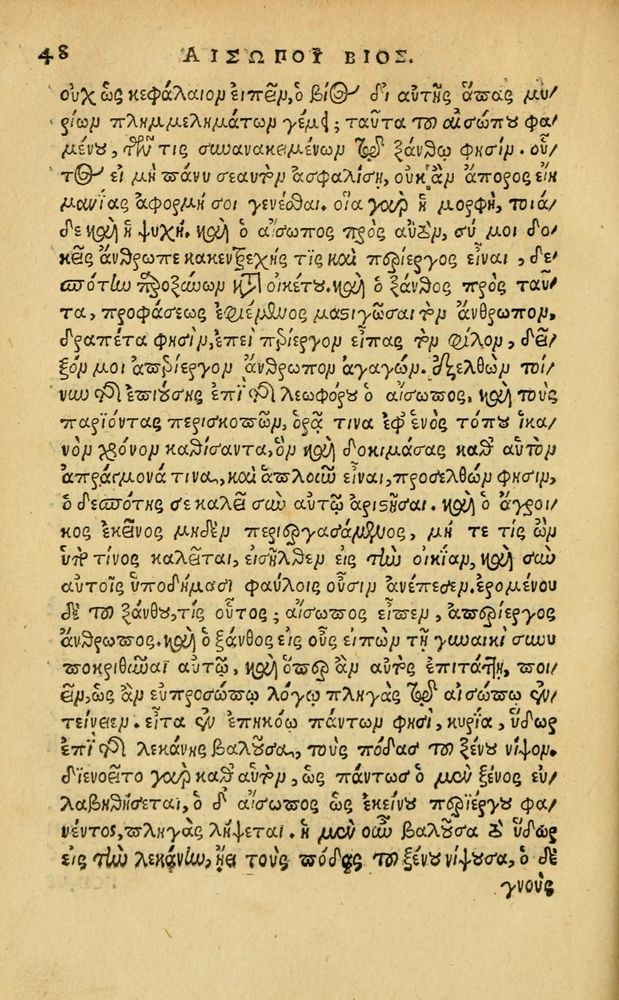 48 ΑΙΣΩΠΟΥ ΒΙΟΣ.
ουχ ὡς κεφάλαιον ειπεῖν, ὁ βίος δι αὐτῆς ἅπας μυ/
ρίων πλημμελημάτων γέμει; ταῦτα τοῦ αισώπου φα/
μένου, τῶν τις συνανακειμένων τῷ ξάνθω φησίν. οὗ/
τος ει μὴ πάνυ σεαυτὸν ἀσφαλίση, ουκ ἂν ἄπορος εἰς
μανίας αφορμή σοι γενέσθαι. οἵα γαρ ἡ μορφὴ, τοιά/
δε καὶ ἡ ψυχή. καὶ ὁ αἴσωπος πρὸς αυτόν, σύ μοι δο/
κεῖς ἄνθρωπε κακεντρεχής τις καὶ περίεργος εἶναι, δε/
σπότην παροξύνων κατὰ οἰκέτου. καὶ ὁ ξάνθος πρὸς ταῦ/
τα, προφάσεως ἐφιέμενος μαστιγῶσαι τὸν ἄνθρωπον,
δραπέτα φησὶν, ἐπεὶ περίεργον εἶπας τὸν φίλον, δεῖ/
ξόν μοι ἀπερίεργον ἄνθρωπον ἀγαγών. ἐξελθὼν τοί/
νυν τῆς ἐπιούσης ἐπὶ τῆς λεωφόρου ὁ αἴσωπος, καὶ τοὺς
παριόντας περισκοπῶν, ὁρᾷ τινα ἐφ ἑνὸς τόπου ἱκα/
νὸν χρόνον καθίσαντα, ὃν καὶ δοκιμάσας καθ αὑτὸν
ἀπράγμονά τινα, καὶ ἁπλοῦν εἶναι, προσελθὼν φησὶν,
ὁ δεσπότης σε καλεῖ σὺν αὐτῷ ἀριστῆσαι. καὶ ὁ ἄγροι/
κος ἐκεῖνος μηδὲν περιεργασάμενος, μή τε τίς ὢν
ὑπό τίνος καλεῖται, εἰσῆλθεν εἰς τὴν οἰκίαν, καὶ σὺν
αυτοῖς ὑποδήμασι φαύλοις οὖσιν ἀνέπεσεν. ἐρομένου
δὲ τοῦ ξάνθου, τίς οὗτος; αἴσωπος εἶπεν, ἀπερίεργος
ἄνθρωπος. καὶ ὁ ξάνθος εἰς οὖς ειπὼν τῇ γυναικὶ συνυ
ποκριθῆναι αὐτῷ, καὶ ὅπερ ἂν αὐτὸς ἐπιτάτῃ, ποι/
εῖν, ὡς ἂν ευπροσώπῳ λόγῳ πληγὰς τῷ αἰσώπῳ ἐν
τείνειεν. εἶτα ἐν ἐπηκόῳ πάντων φησὶ, κυρία, ὕδωρ
ἐπὶ τῆς λεκάνης βαλοῦσα, τοὺς πόδας τοῦ ξένου νίψον.
διενοεῖτο γὰρ καθ αὑτὸν, ὡς πάντως ὁ μὲν ξένος ευ/
λαβηθήσεται, ὁ δ αἴσωπος ὡς ἐκείνου περιέργου φα/
νέντος, πληγὰς λήψεται. ἡ μὲν οὖν βαλοῦσα τὸ ὕδωρ
εἰς τὴν λεκάνην, ᾔει τοὺς πόδας τοῦ ξένου νίψουσα, ὁ δὲ
γνοὺς